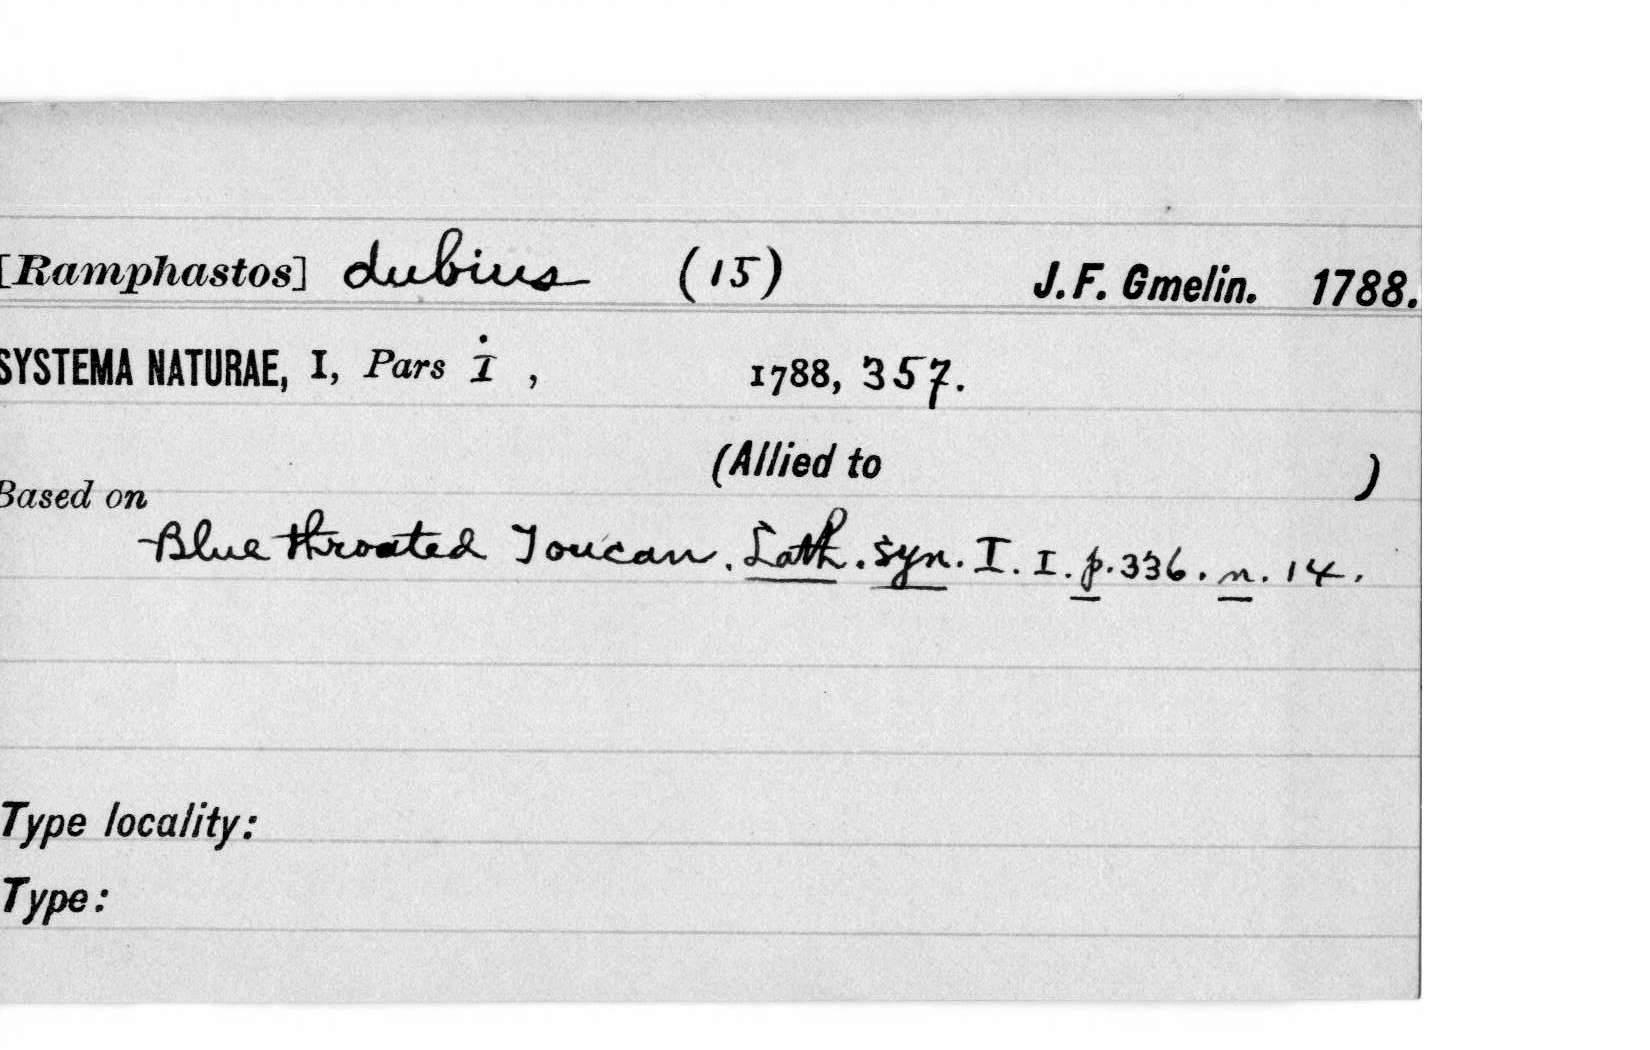 [Ramphastos] dubius (15) J. F. Gmelin. 1788.
SYSTEMA NATURAE, I, Pars i , 1788, 357.
(Allied to )
Based on
Blue throated Toucan. Lath. syn. I. I. p. 336. n. 14.
Type locality:
Type: